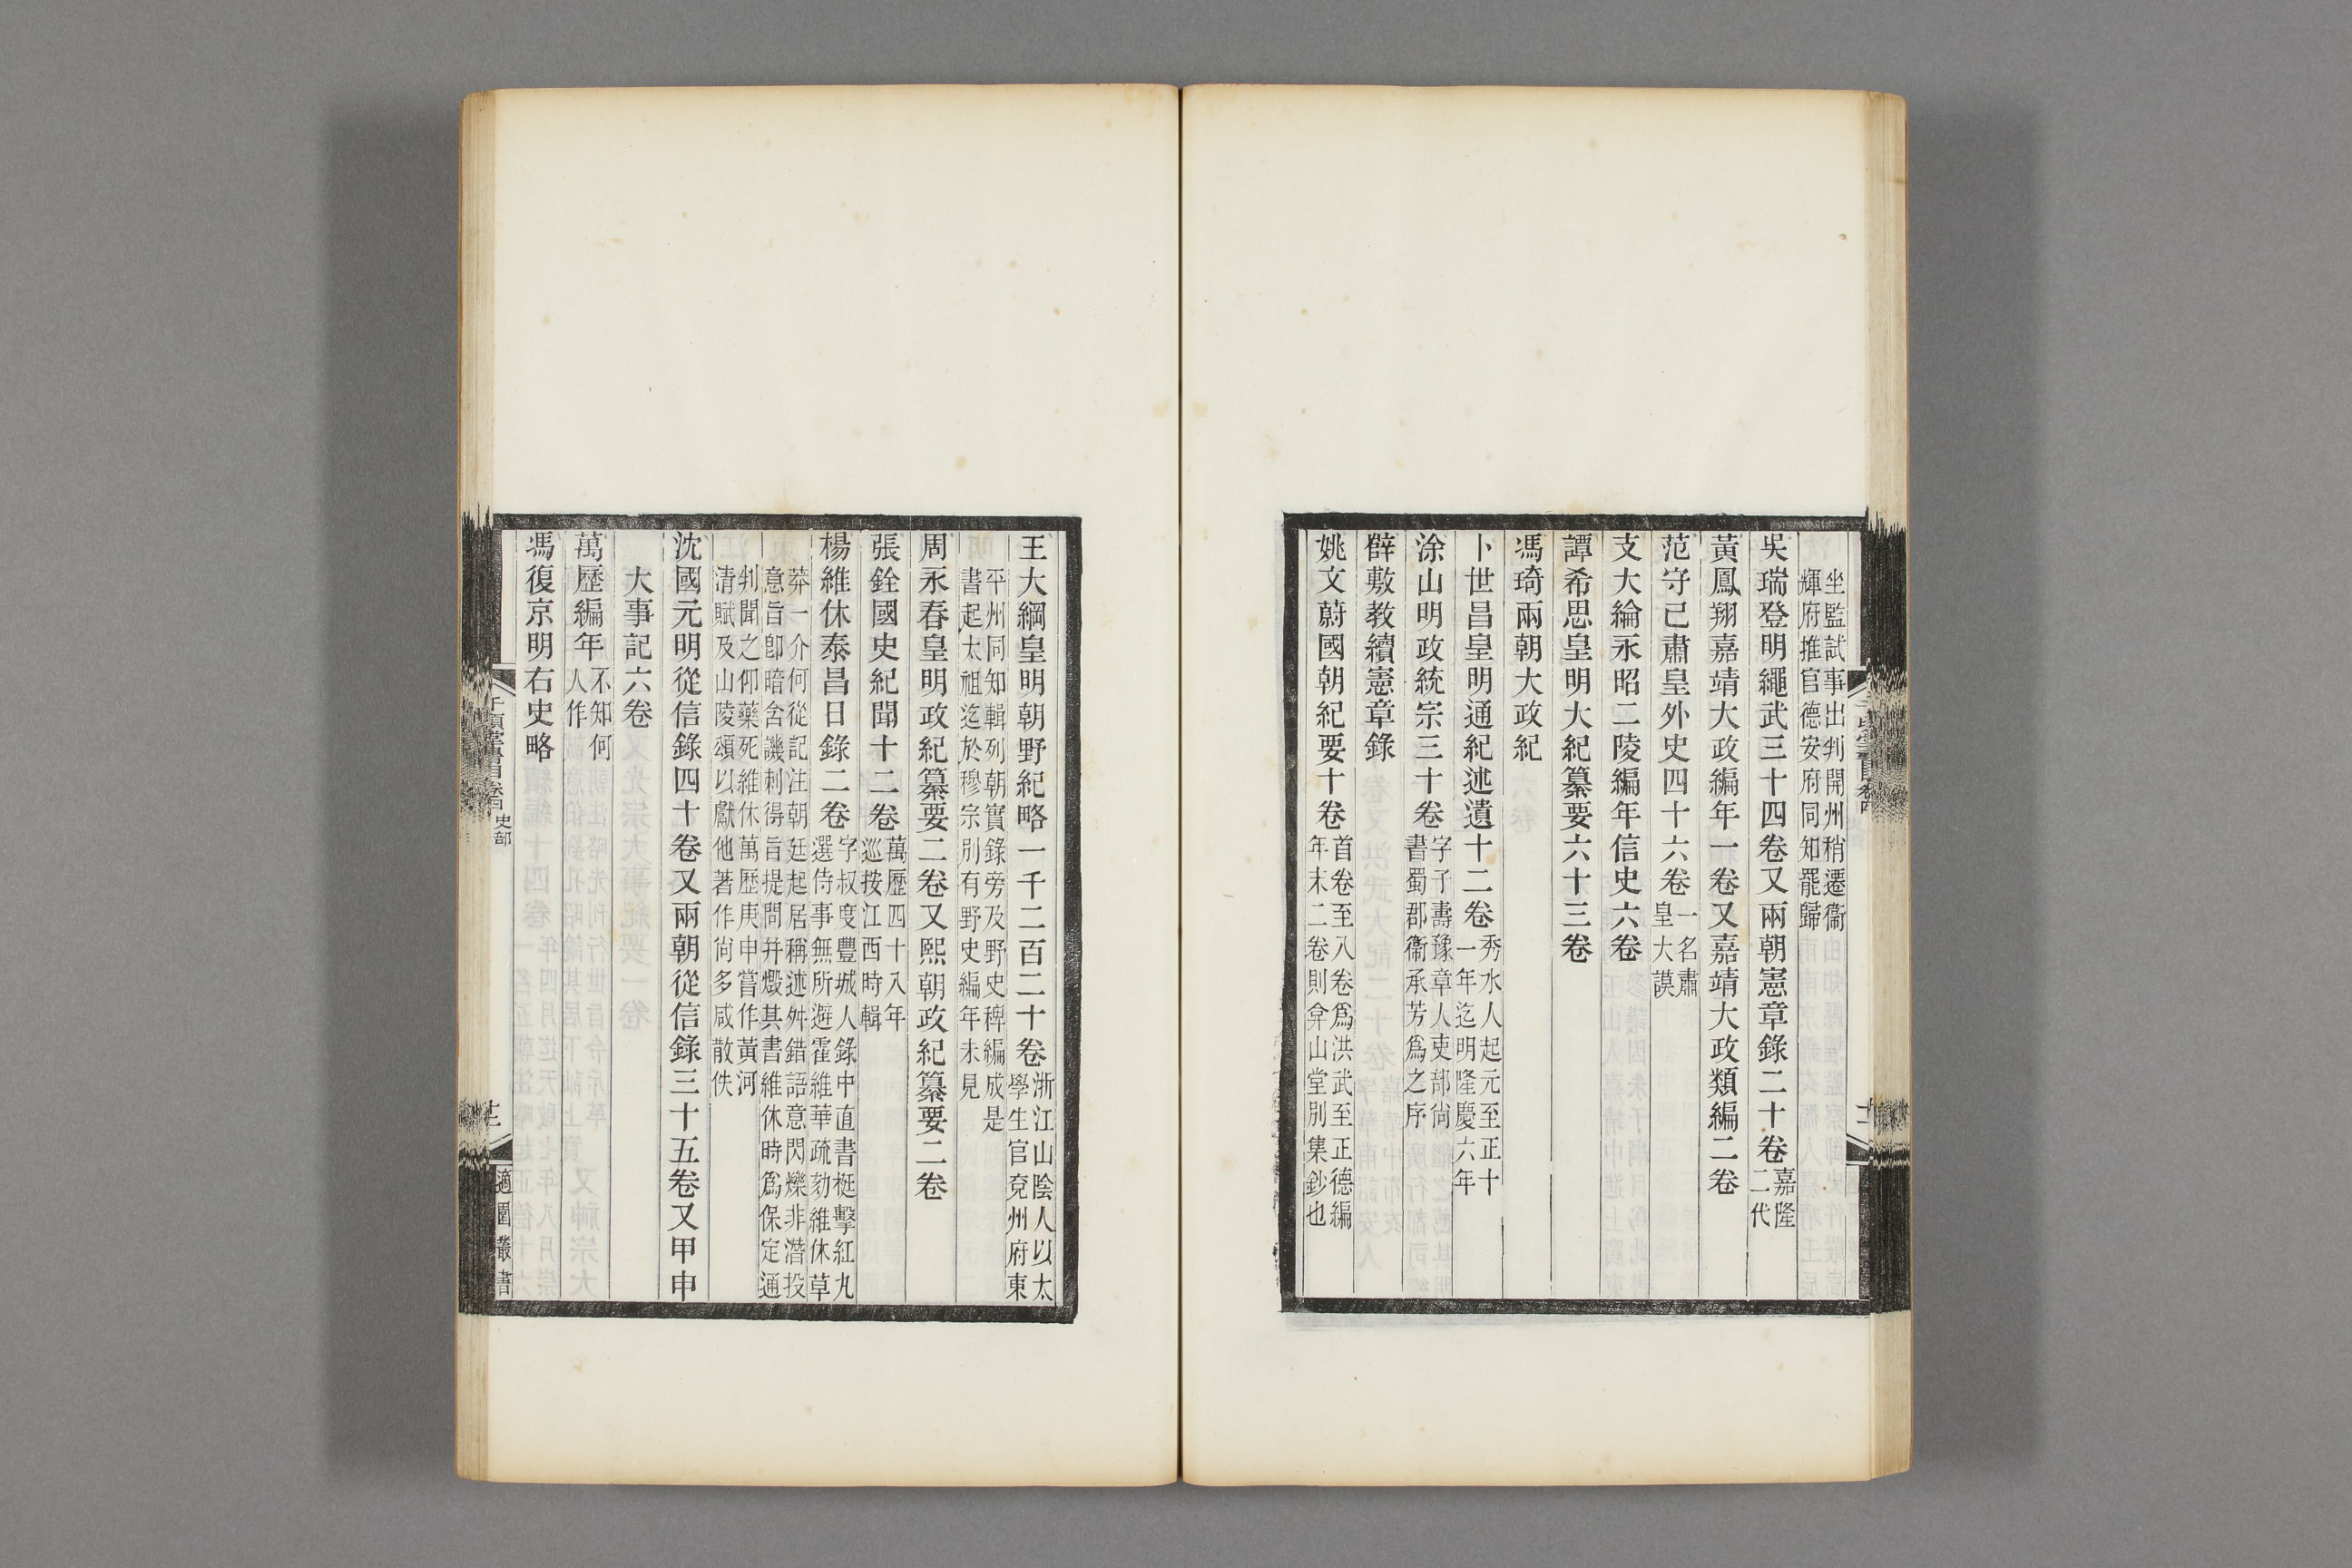 坐監試事出判開州稍遷衞
輝府推官德安府同知罷歸
吳瑞登明繩武三十四卷又兩朝憲章錄二十卷嘉隆
二代
黃鳳翔嘉靖大政編年一卷又嘉靖大政類編二卷
范守己肅皇外史四十六卷一名肅
皇大謨
支大綸永昭二陵編年信史六卷
譚希思皇明大紀纂要六十三卷
馮琦兩朝大政紀
卜世昌皇明通紀述遺十二卷秀水人起元至正十
一年迄明隆慶六年
涂山明政統宗三十卷字子壽豫章人吏部尙
書蜀郡衞承芳爲之序
薛敷教續憲章錄
姚文蔚國朝紀要十卷首卷至八卷爲洪武至正德編
年末二卷則弇山堂別集鈔也
王大綱皇明朝野紀略一千二百二十卷浙江山陰人以太
學生官兗州府東
平州同知輯列朝實錄旁及野史稗編成是
書起太祖迄於穆宗別有野史編年未見
周永春皇明政紀纂要二卷又熙朝政紀纂要二卷
張銓國史紀聞十二卷萬歷四十八年
巡按江西時輯
楊維休泰昌日錄二卷字叔度豐城人錄中直書梃擊紅丸
選侍事無所避霍維華疏劾維休草
莽一介何從記注朝廷起居稱述舛錯語意閃爍非潛投
意旨卽暗含譏刺得旨提問幷燬其書維休時爲保定通
判聞之仰藥死維休萬歷庚申嘗作黃河
清賦及山陵頌以獻他著作尙多咸散佚
沈國元明從信錄四十卷又兩朝從信錄三十五卷又甲申
大事記六卷
萬歷編年不知何
人作
馮復京明右史略
千頃堂書目卷四 史部
適園叢書